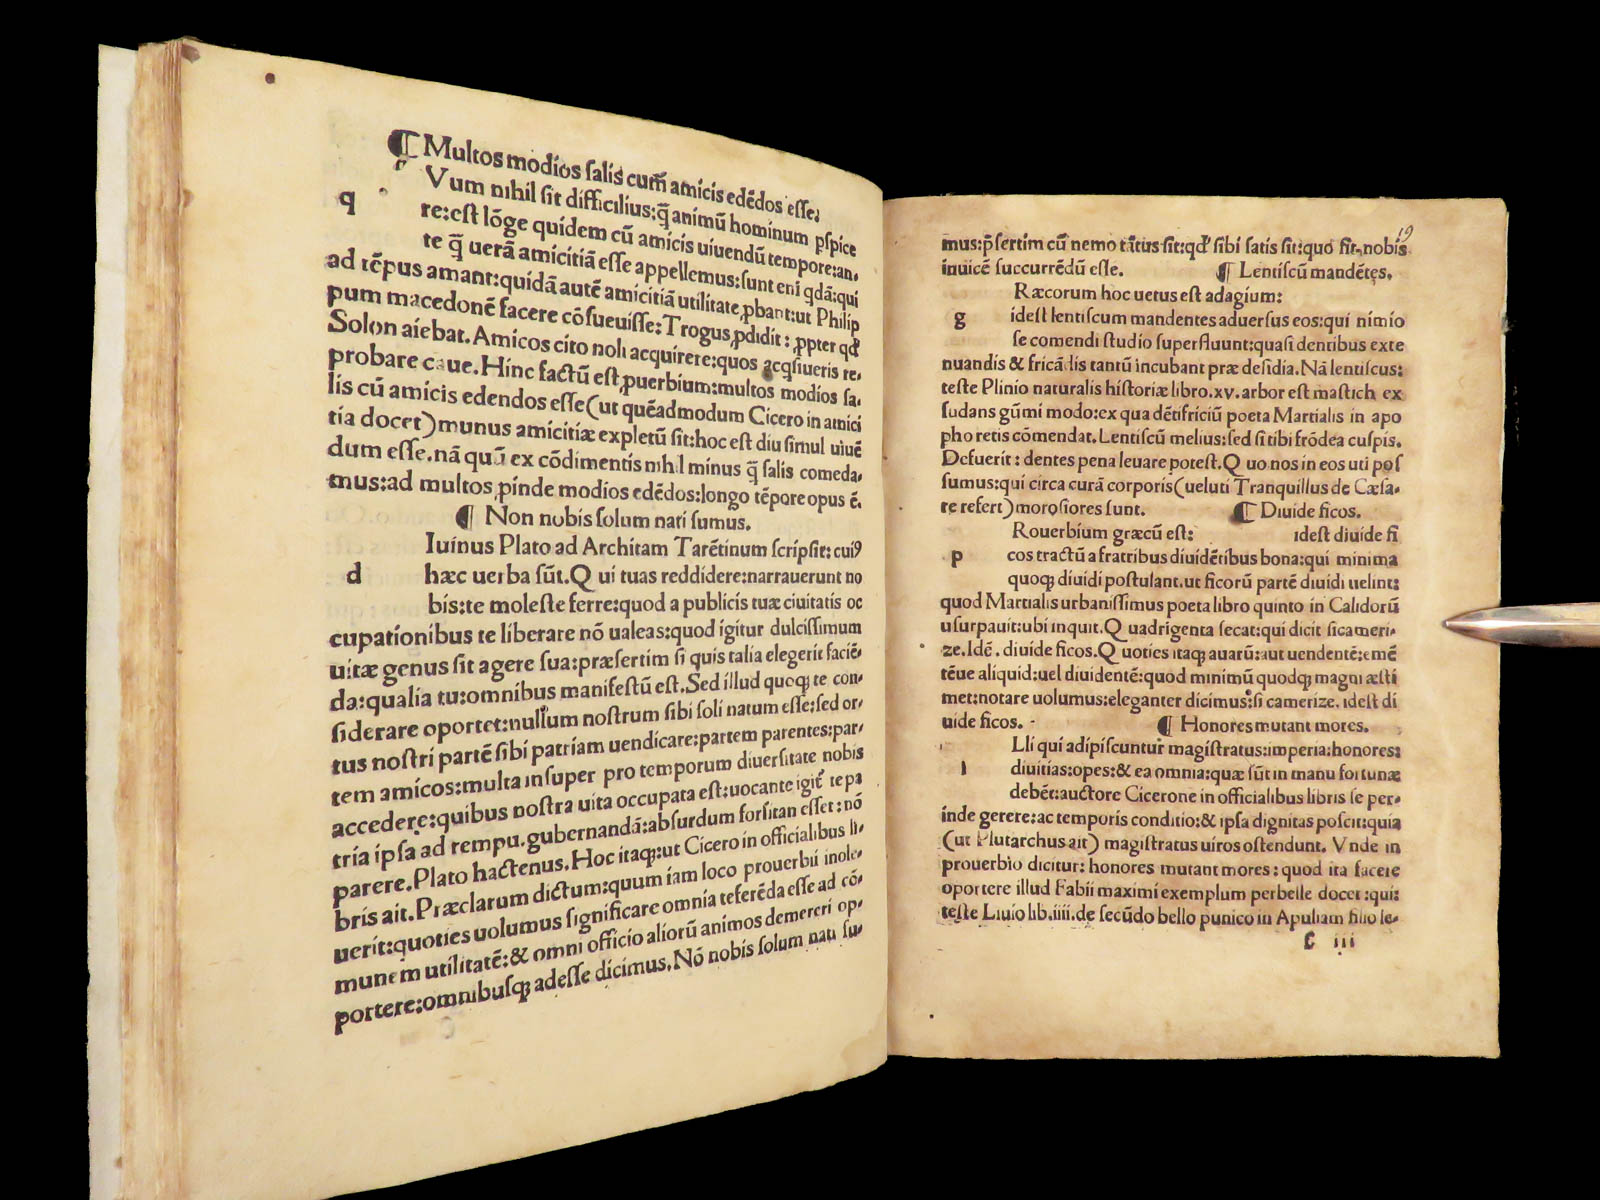 ¶ Multos modios ſalis cum̃ amicis edēdos eſſe:
q Vum nihil ſit difficilius:q̃ animū hominum ꝑſpice
re:eſt lōge quidem cū amicis uiuendū tempore:an-
te q̃ uerā amicitiā eſſe appellemus:ſunt eni q̄dā:qui
ad tēpus amant:quidā autē amicitiā utilitate ꝓbant:ut Philip
pum macedonē facere cōſueuiſſe:Trogus ꝓdidit: ꝓpter qđ
Solon aiebat. Amicos cito noli acquirere:quos acq̃ſiueris re-
probare caue. Hinc factū eſt ꝓuerbium:multos modios ſa-
lis cū amicis edendos eſſe(ut quēadmodum Cicero in amici
tia docet)munus amicitiæ expletū ſit:hoc eſt diu ſimul uiuē
dum eſſe.nā quū ex cōdimentis nihil minus q̃ ſalis comeda-
mus:ad multos ꝓinde modios edēdos:longo tēpore opus ē.
¶ Non nobis ſolum nati ſumus.
d Iuinus Plato ad Architam Tarētinum ſcripſit: cuiꝰ
hæc uerba ſūt.Q ui tuas reddidere:narrauerunt no
bis:te moleſte ferre:quod a publicis tuæ ciuitatis oc
cupationibus te liberare nō ualeas:quod igitur dulciſſimum
uitæ genus ſit agere ſua:præſertim ſi quis talia elegerit faciē-
da:qualia tu:omnibus manifeſtū eſt.Sed illud quoqꝫ te con-
ſiderare oportet:nullum noſtrum ſibi ſoli natum eſſe:ſed or-
tus noſtri partē ſibi patriam uendicare:partem parentes:par-
tem amicos:multa inſuper pro temporum diuerſitate nobis
accedere:quibus noſtra uita occupata eſt:uocante igit̃ te pa
tria ipſa ad rempu.gubernandā:abſurdum forſitan eſſet: nō
parere.Plato hactenus.Hoc itaqꝫ:ut Cicero in officialibus li-
bris ait.Præclarum dictum:quum iam loco prouerbii inole-
uerit:quoties uolumus ſignificare omnia referēda eſſe ad cō-
munem utilitatē:& omni officio aliorū animos demereri op-
portere:omnibuſqꝫ adeſſe dicimus.Nō nobis ſolum nati ſu-
19
mus:p̃ſertim cū nemo tātus ſit:qđ ſibi ſatis ſit:quo fit nobis
inuicē ſuccurrēdū eſſe. ¶ Lentiſcū mandētes.
g Ræcorum hoc uetus eſt adagium:
ideſt lentiſcum mandentes aduerſus eos:qui nimio
ſe comendi ſtudio ſuperfluunt:quaſi dentibus exte
nuandis & fricādis tantū incubant præ deſidia.Nā lentiſcus:
teſte Plinio naturalis hiſtoriæ libro.xv.arbor eſt maſtich ex
ſudans gūmi modo:ex qua dētifriciū poeta Martialis in apo
pho retis cōmendat.Lentiſcū melius:ſed ſi tibi frōdea cuſpis.
Defuerit: dentes pena leuare poteſt.Q uo nos in eos uti poſ
ſumus:qui circa curā corporis(ueluti Tranquillus de Cæſa-
re refert)moroſiores ſunt. ¶ Diuide ficos.
p Rouerbium græcū eſt: ideſt diuide fi
cos tractū a fratribus diuidētibus bona:qui minima
quoqꝫ diuidi poſtulant.ut ficorū partē diuidi uelint:
quod Martialis urbaniſſimus poeta libro quinto in Calidorū
uſurpauit:ubi inquit.Q uadrigenta ſecat:qui dicit ſicameri-
ze.Idē. diuide ficos.Q uoties itaqꝫ auarū:aut uendentē:emē
tēue aliquid:uel diuidentē:quod minimū quodqꝫ magni æſti
met:notare uolumus:eleganter dicimus:ſi camerize.ideſt di
uide ficos. ¶ Honores mutant mores.
I Lli qui adipiſcuntur magiſtratus:imperia:honores:
diuitias:opes:& ea omnia:quæ ſūt in manu fortunæ
debēt:auctore Cicerone in officialibus libris ſe per-
inde gerere:ac temporis conditio:& ipſa dignitas poſcit:quia
(ut Plutarchus ait) magiſtratus uiros oſtendunt. Vnde in
prouerbio dicitur: honores mutant mores: quod ita facere
oportere illud Fabii maximi exemplum perbelle docet:qui:
teſte Liuio lib.iiii.de ſecūdo bello punico in Apuliam filio le-
C iii